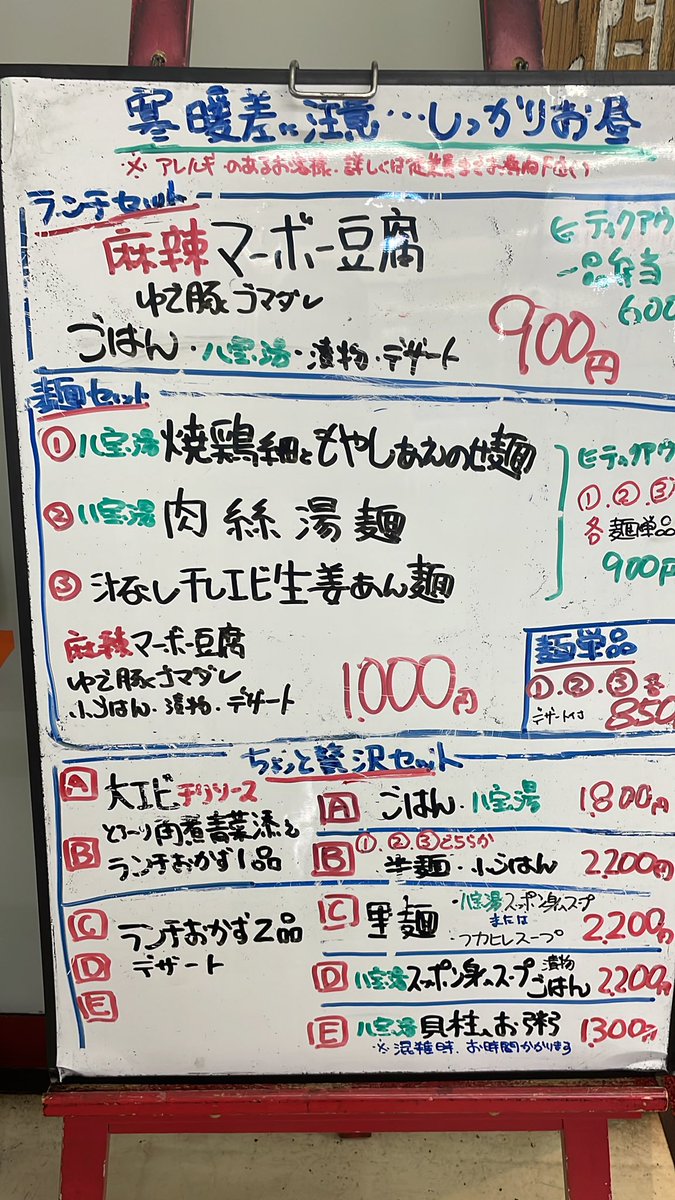 寒暖差に注意…しっかりお昼
※アレルギーのあるお客様、詳しくは従業員までお尋ね下さい
ランチセット
麻辣マーボー豆腐
ゆで豚ゴマダレ
ごはん・八宝湯・漬物・デザート
900円
テイクアウ
一品弁当
600
麺セット
①八宝湯 焼鶏細ともやしあえのせ麺
②八宝湯 肉絲湯麺
③汁なし干しエビ生姜あん麺
テイクアウ
①.②.③
各麺単品
900円
麻辣マーボー豆腐
ゆで豚ゴマダレ
小ごはん・漬物・デザート
1.000円
麺単品
①.②.③各
デザート付 850
ちょっと贅沢セット
A 大エビチリソース
B とろ〜り角煮青菜添え
ランチおかず1品
A ごはん・八宝湯 1.800円
①.②.③どちらか
B 半麺・小ごはん 2.200円
C ランチおかず2品
D デザート
E
C 里麺 ・八宝湯スッポン身入スープ
または
・フカヒレスープ
2.200円
D 八宝湯スッポン身入スープ 漬物 ごはん 2.200円
E 八宝湯 貝柱入お粥 1.300円
※混雑時、お時間かかります